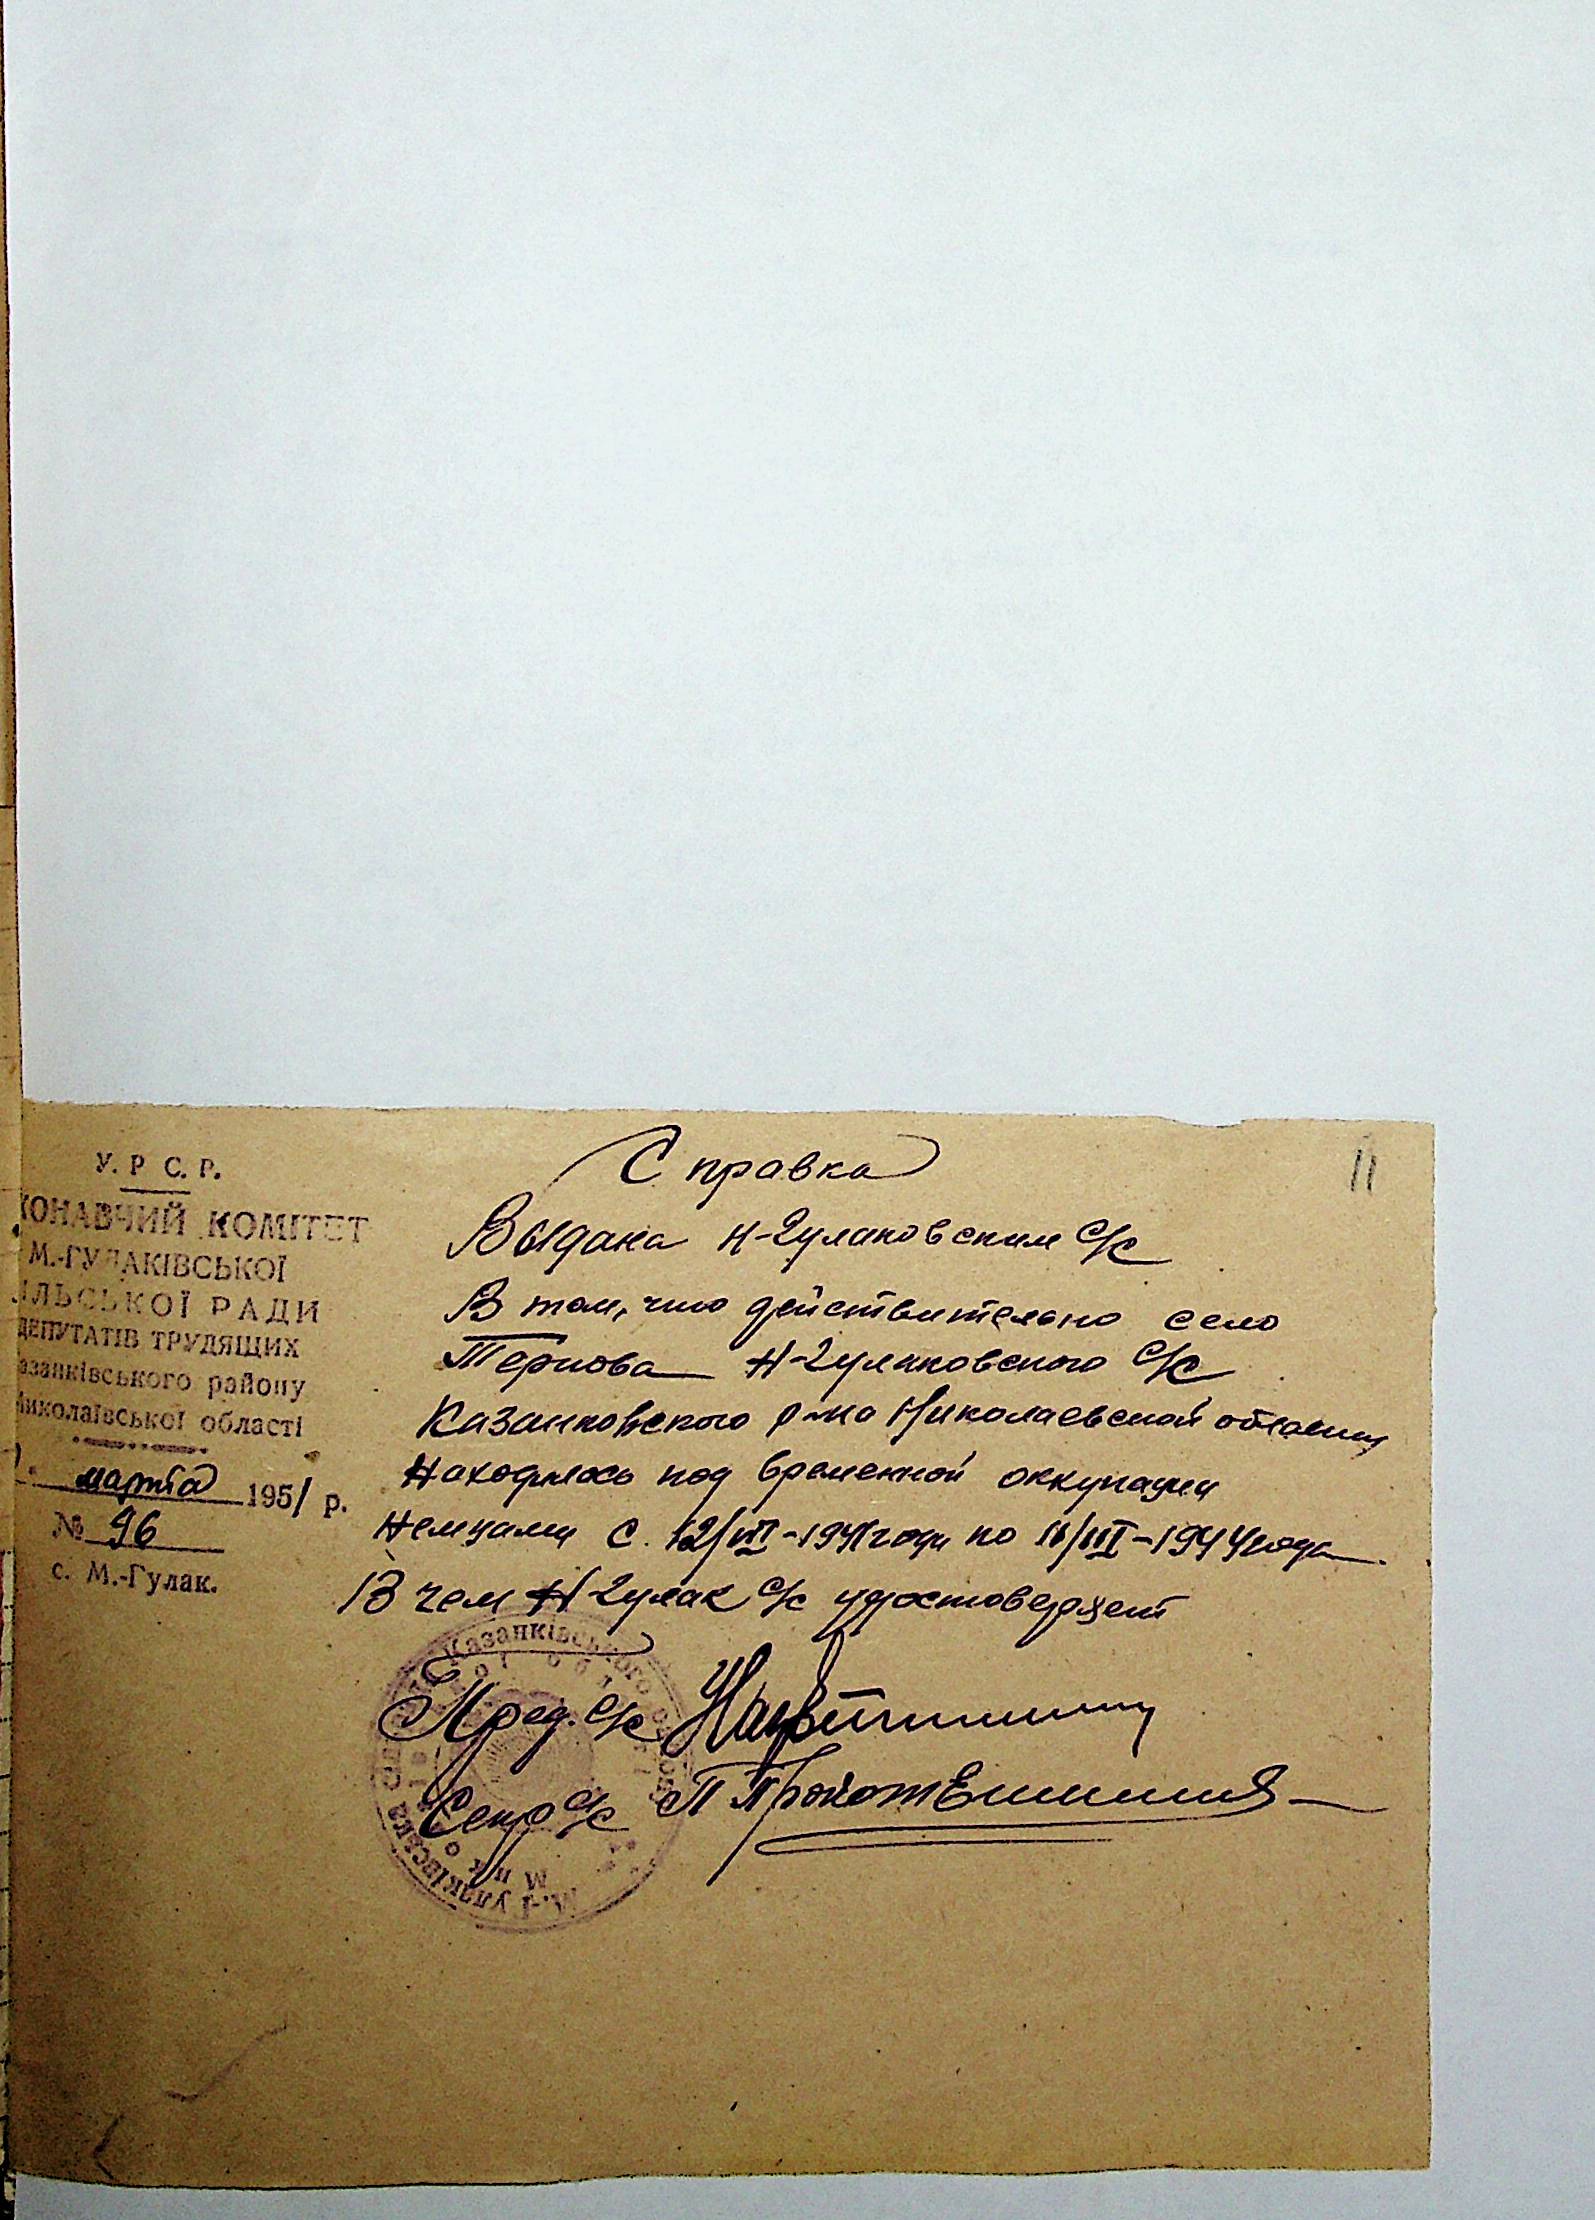 У. Р С. Р.
КОНАВЧИЙ КОМІТЕТ
М.-ГУЛАКІВСЬКОЇ
ІЛЬСЬКОЇ РАДИ
ДЕПУТАТІВ ТРУДЯЩИХ
азанківського району
Миколаївської області
марта 1951 р.
№ 96
с. М.-Гулак.
11
Справка
Выдана Н-Гулаковским с/с
В том, что действительно село
Тернова Н-Гулаковского с/с
Казанковского р-на Николаевской области
Находилось под временной оккупации
Немцами с 12/VIII-1941 года по 11/III-1944 года
В чем Н Гулак с/с удостоверяет
Пред. с/с
Секр с/с П
Казанківського
М.-Гулаківська